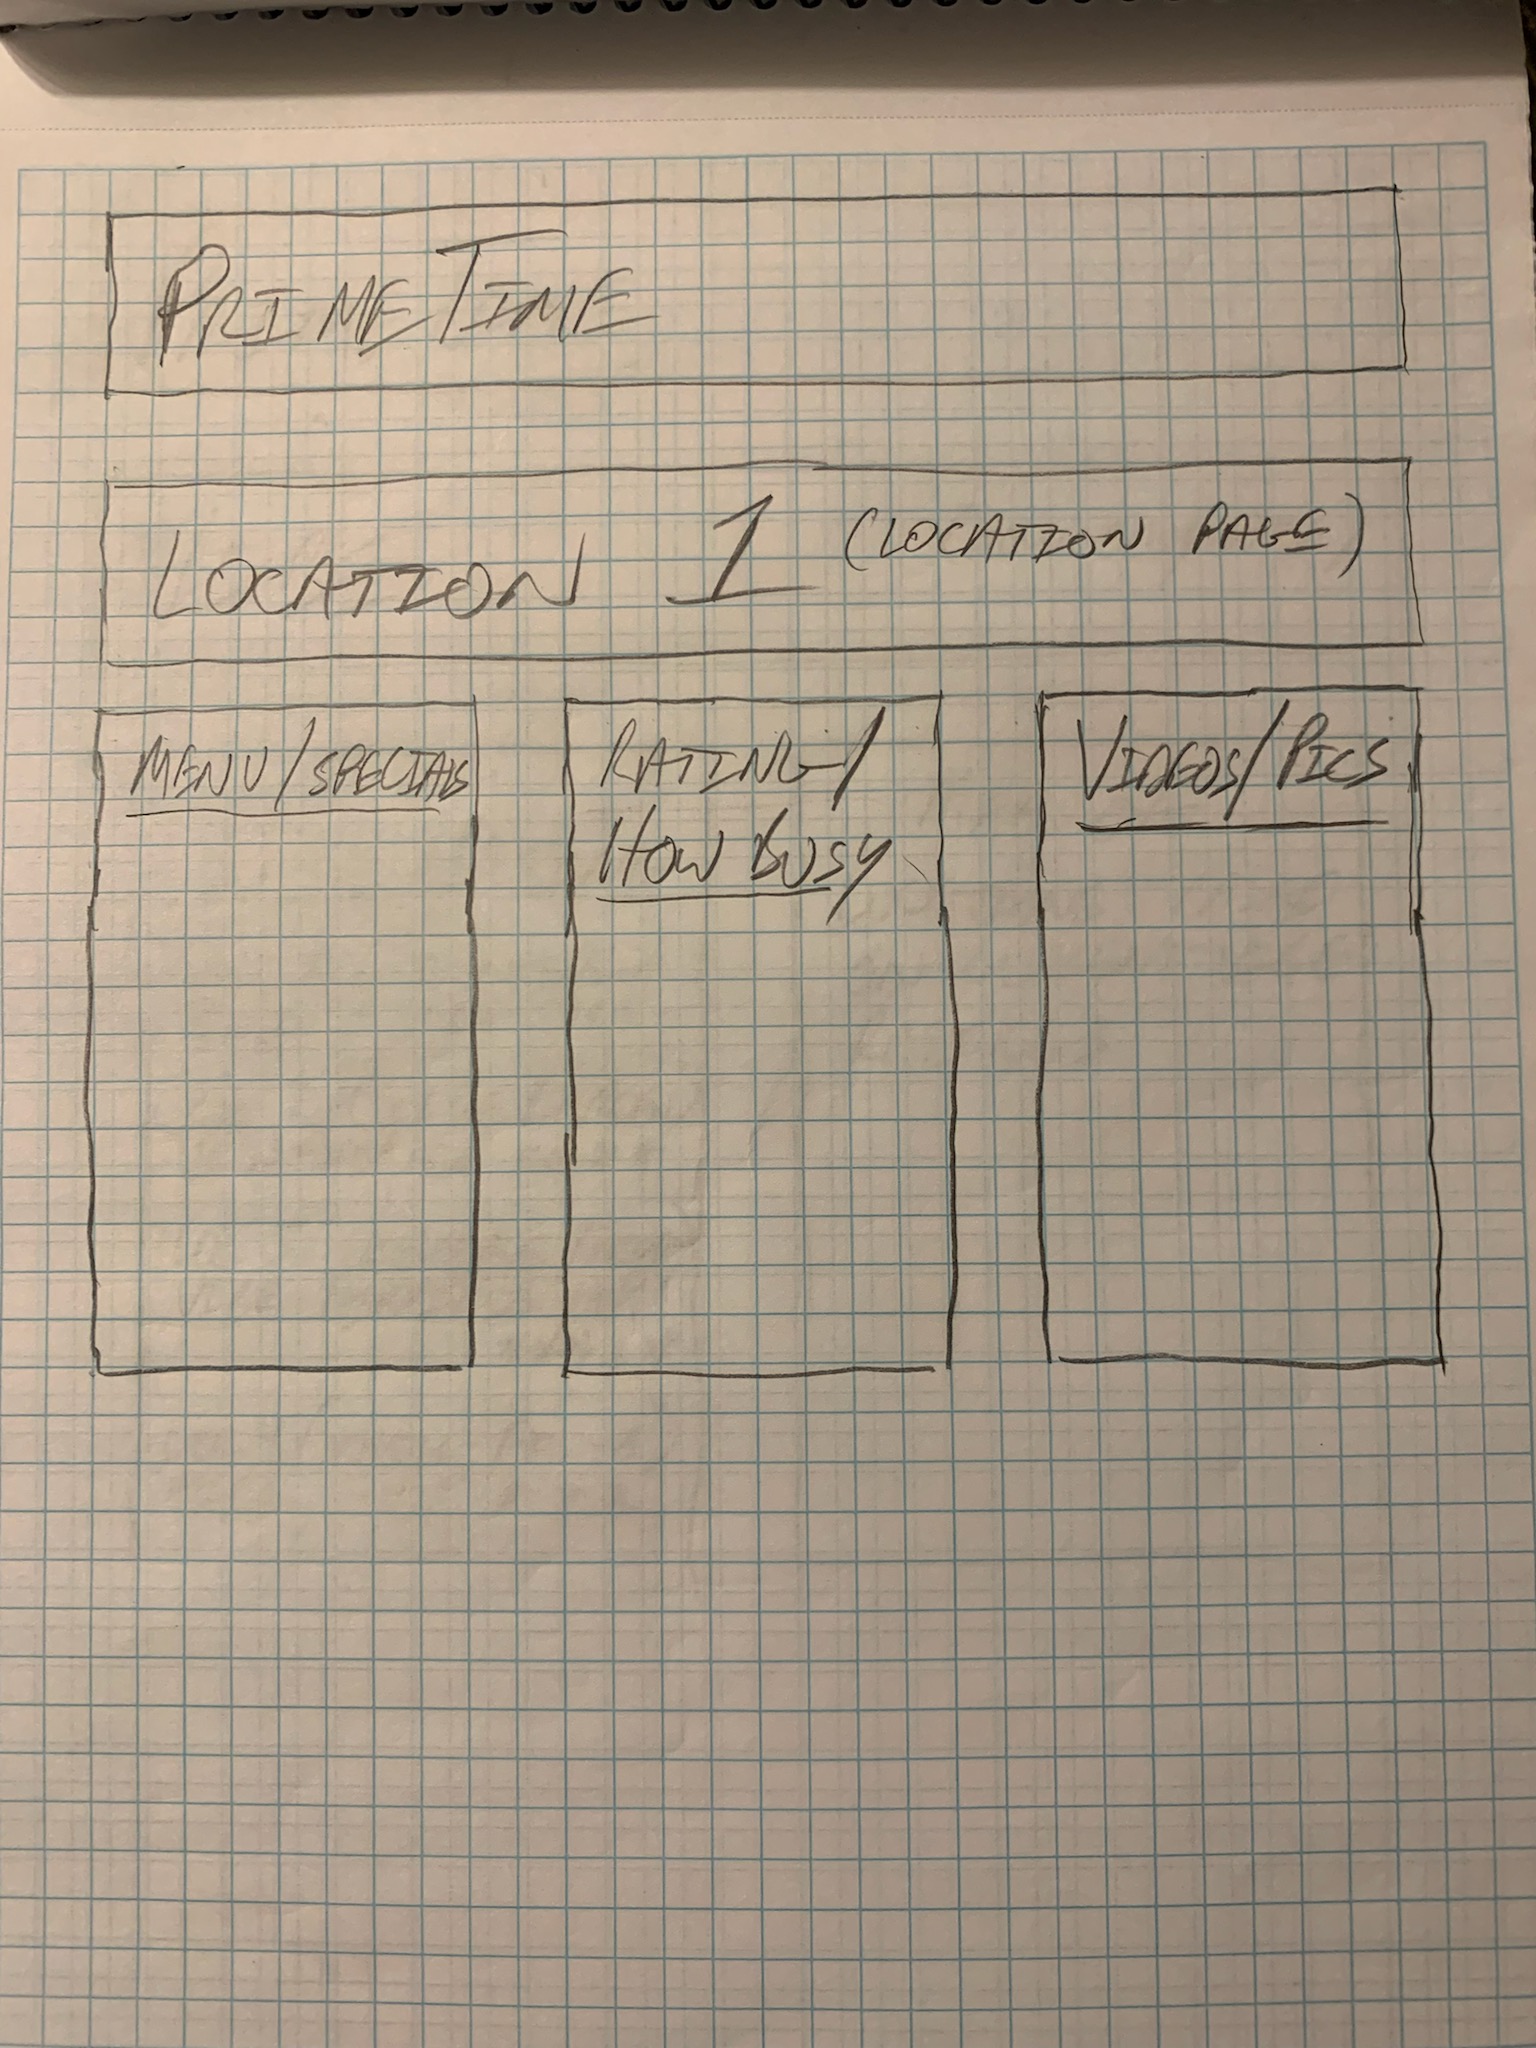 PRIMETIME
LOCATION 1 (LOCATION PAGE)
MENU/SPECIALS
RATING/
HOW BUSY
VIDEOS/PICS